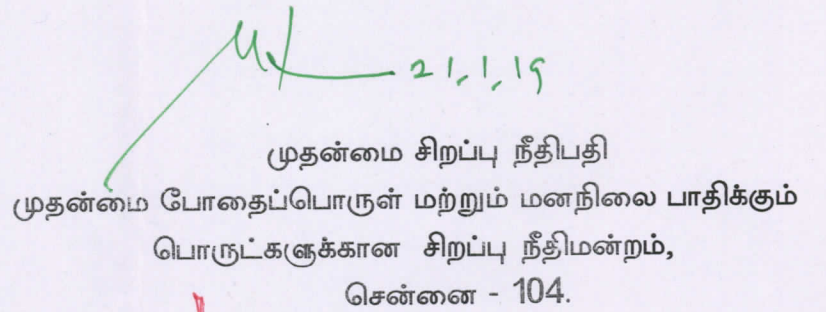 21.1.19
முதன்மை சிறப்பு நீதிபதி
முதன்மை போதைப்பொருள் மற்றும் மனநிலை பாதிக்கும்
பொருட்களுக்கான சிறப்பு நீதிமன்றம்,
சென்னை - 104.